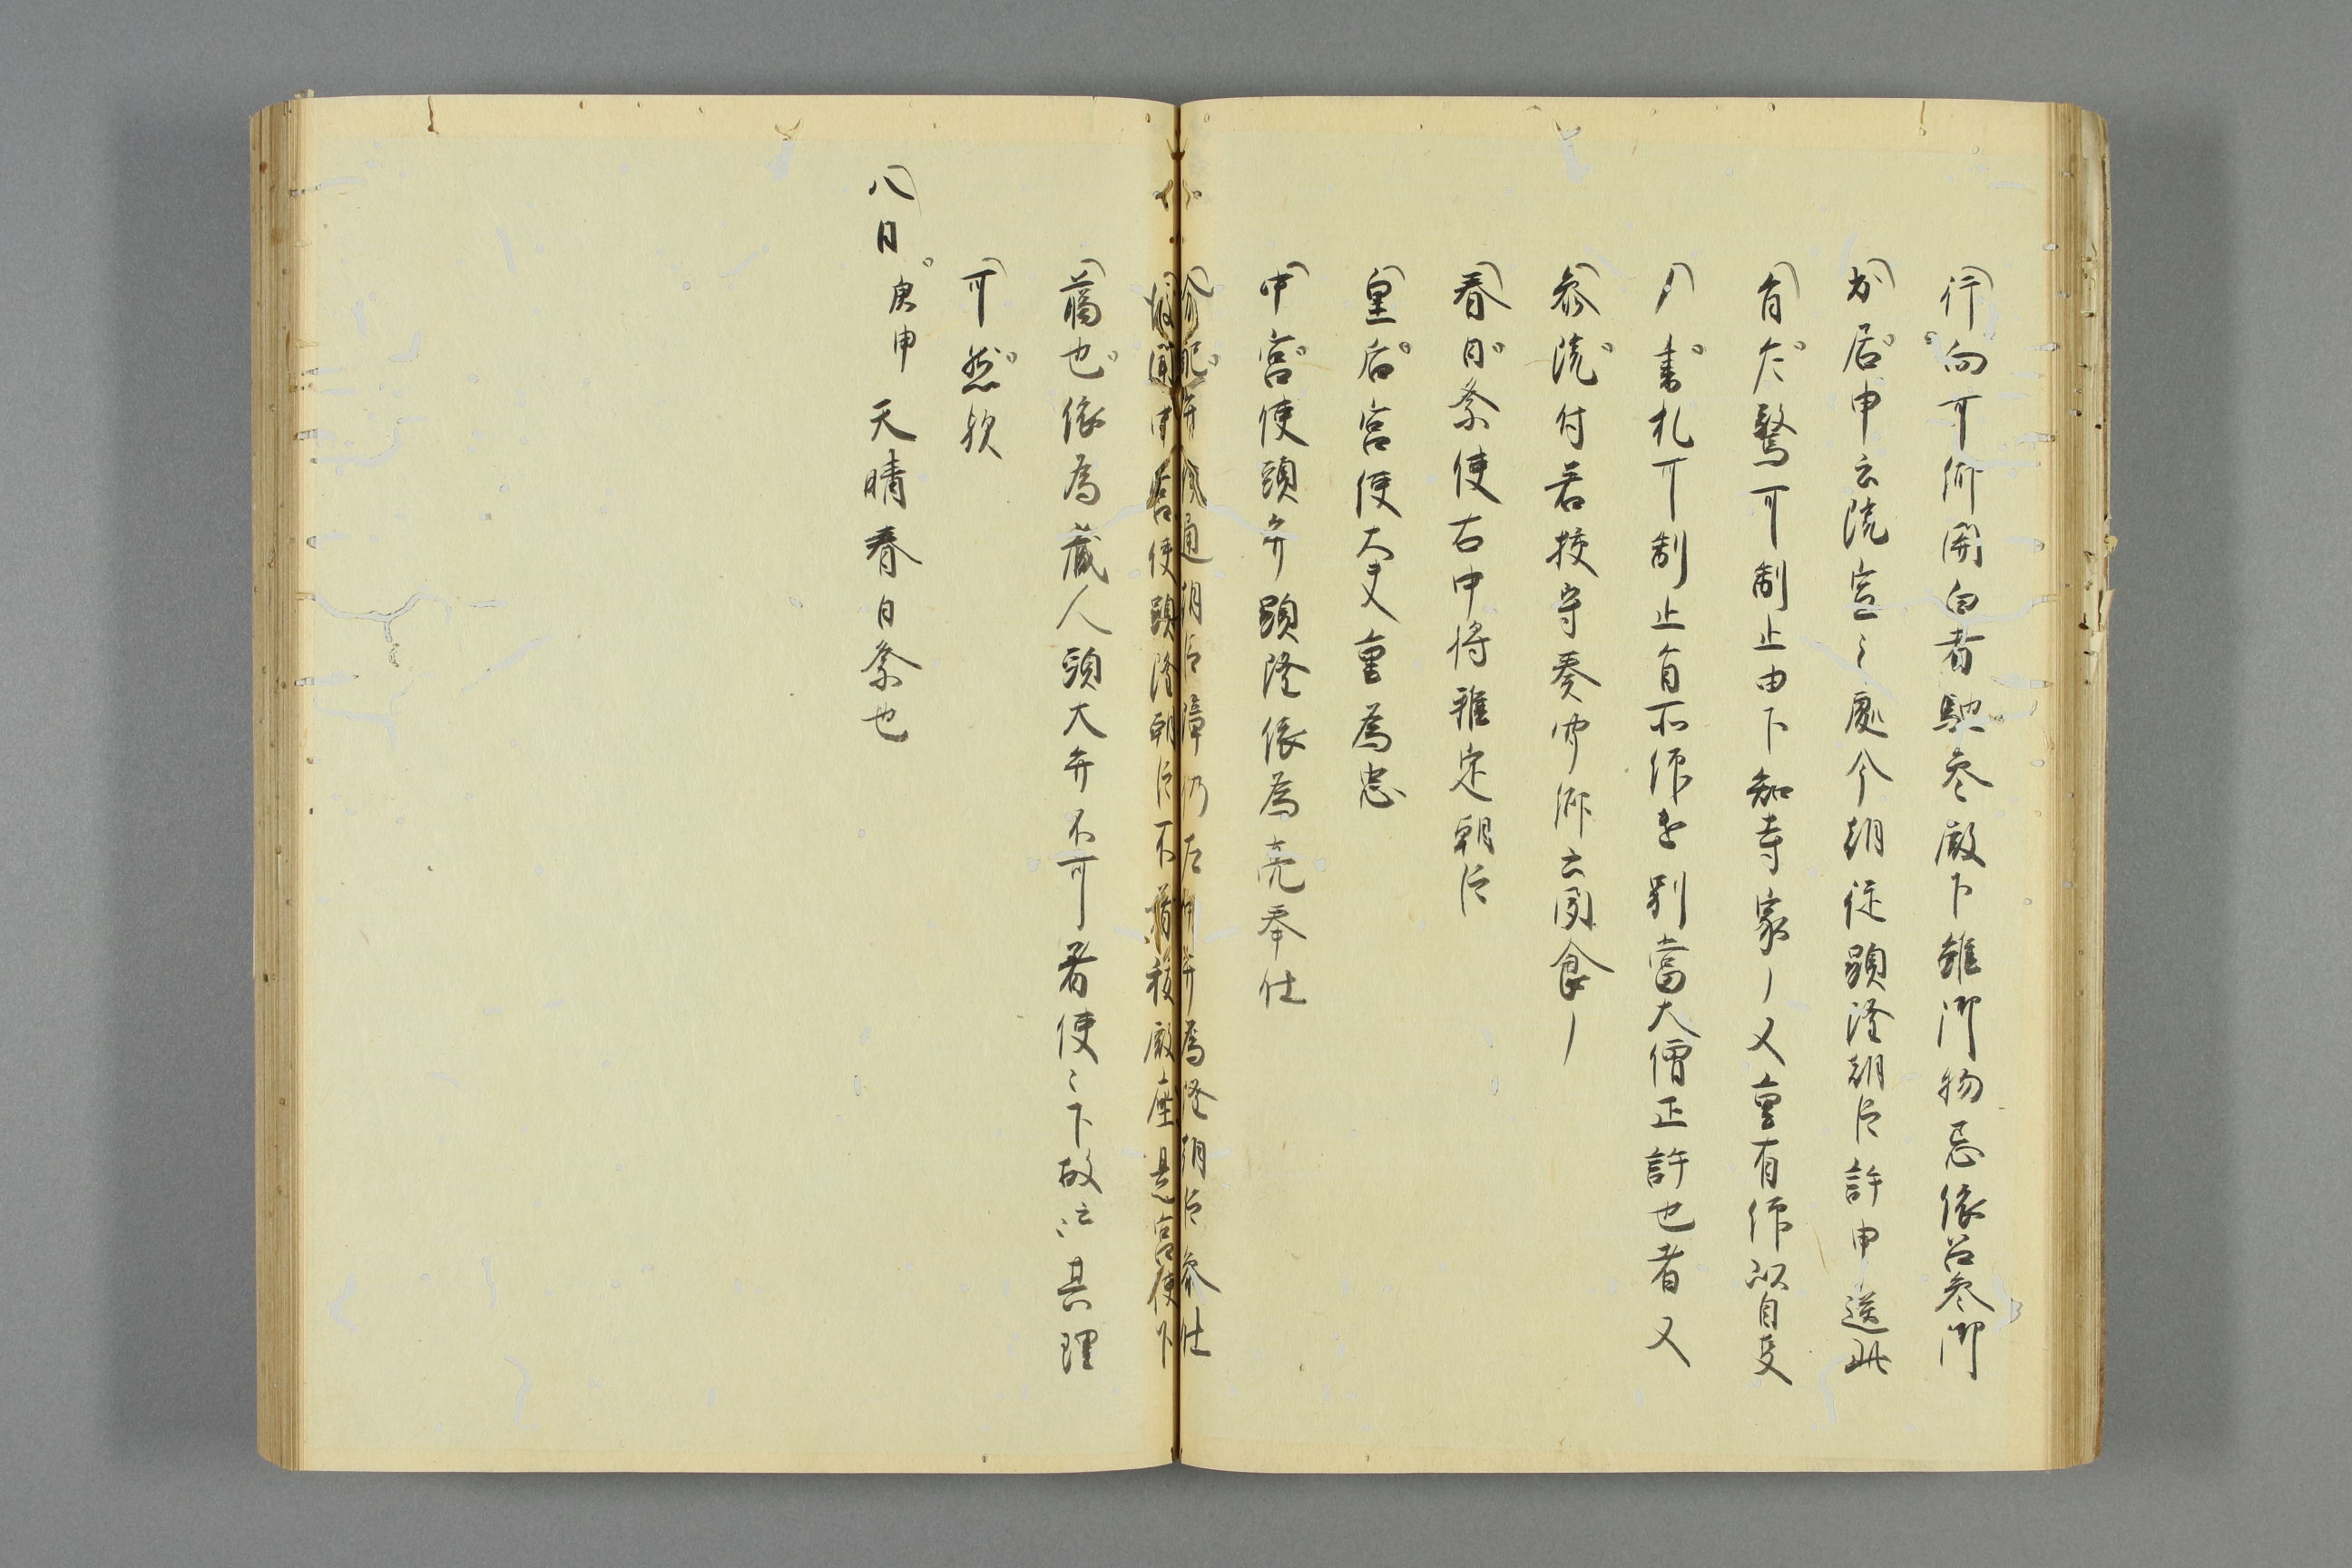 行向可術開白者馳参殿下雖御物忌依召参御
出居申云院宣之處今朝従顕隆朝臣許申送此
旨尤驚可制止由下知寺家〳又重有仰以自受
〳書札可制止旨所仰遣別當大僧正許也者又
参院付若狭守奏事御云聞食〳
春日祭使右中将雅定朝臣
皇后宮使大夫重為忠
中宮使頭弁顕隆依為亮奉仕
弁通朝臣障仍左中弁為隆朝臣参仕
後聞中宮使顕隆朝臣不着称殿座是宮使下
臈也依為蔵人頭大弁不可着使〻下故云〻其理
可然歟
八日庚申天晴春日祭也